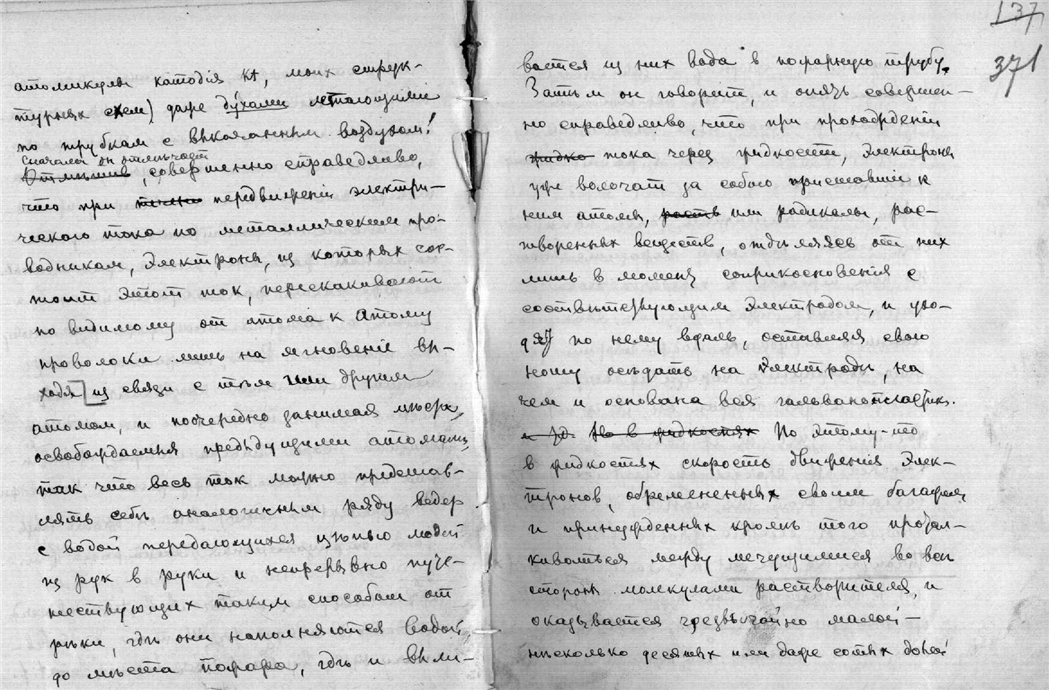 137
371
атомикулы катодія Kt, моих струк-
турных схем) даже духами летающими
по трубкам с выкачанным воздухом!
Сначала он отмѣчает
совершенно справедливо,
что при передвиженіи электри-
ческого тока по металлическим про-
водникам, электроны, из которых сос-
тоит этот ток, перескакивают
по видимому от атома к атому
проволоки лишь на мгновеніе вы-
ходя из связи с тѣм или другим
атомом, и поочередно занимая мѣста,
освобождаемыя предыдущими атомами,
так что весь ток можно представ-
лять себѣ аналогичным ряду ведер
с водой передающихся цѣпью людей
из рук в руки и непрерывно путе-
шествующих таким способом от
рѣки, гдѣ они наполняются водой,
до мѣста пожара, гдѣ и выли-
вается из них вода в пожарную трубу.
Затѣм он говорит, и опять совершен-
но справедливо, что при прохожденіи
жидко тока через жидкость, электроны
уже волочат за собою приставшіе к
ним атомы, или радикалы, рас-
творенных веществ, отдѣляясь от них
лишь в момент соприкосновенія с
соотвѣтствующим электродом, и ухо-
дят по нему вдаль, оставляя свою
ношу осѣдать на электродѣ, на
чем и основана вся гальванопластика.
Но в жидкостях По этому-то
в жидкостях скорость движенія элек-
тронов, обремененных своим багажем,
и принужденных кромѣ того протал-
киваться между мечущимися во всѣ
стороны молекулами растворителя, и
оказывается чрезвычайно малой –
нѣсколько десятых или даже сотых долей